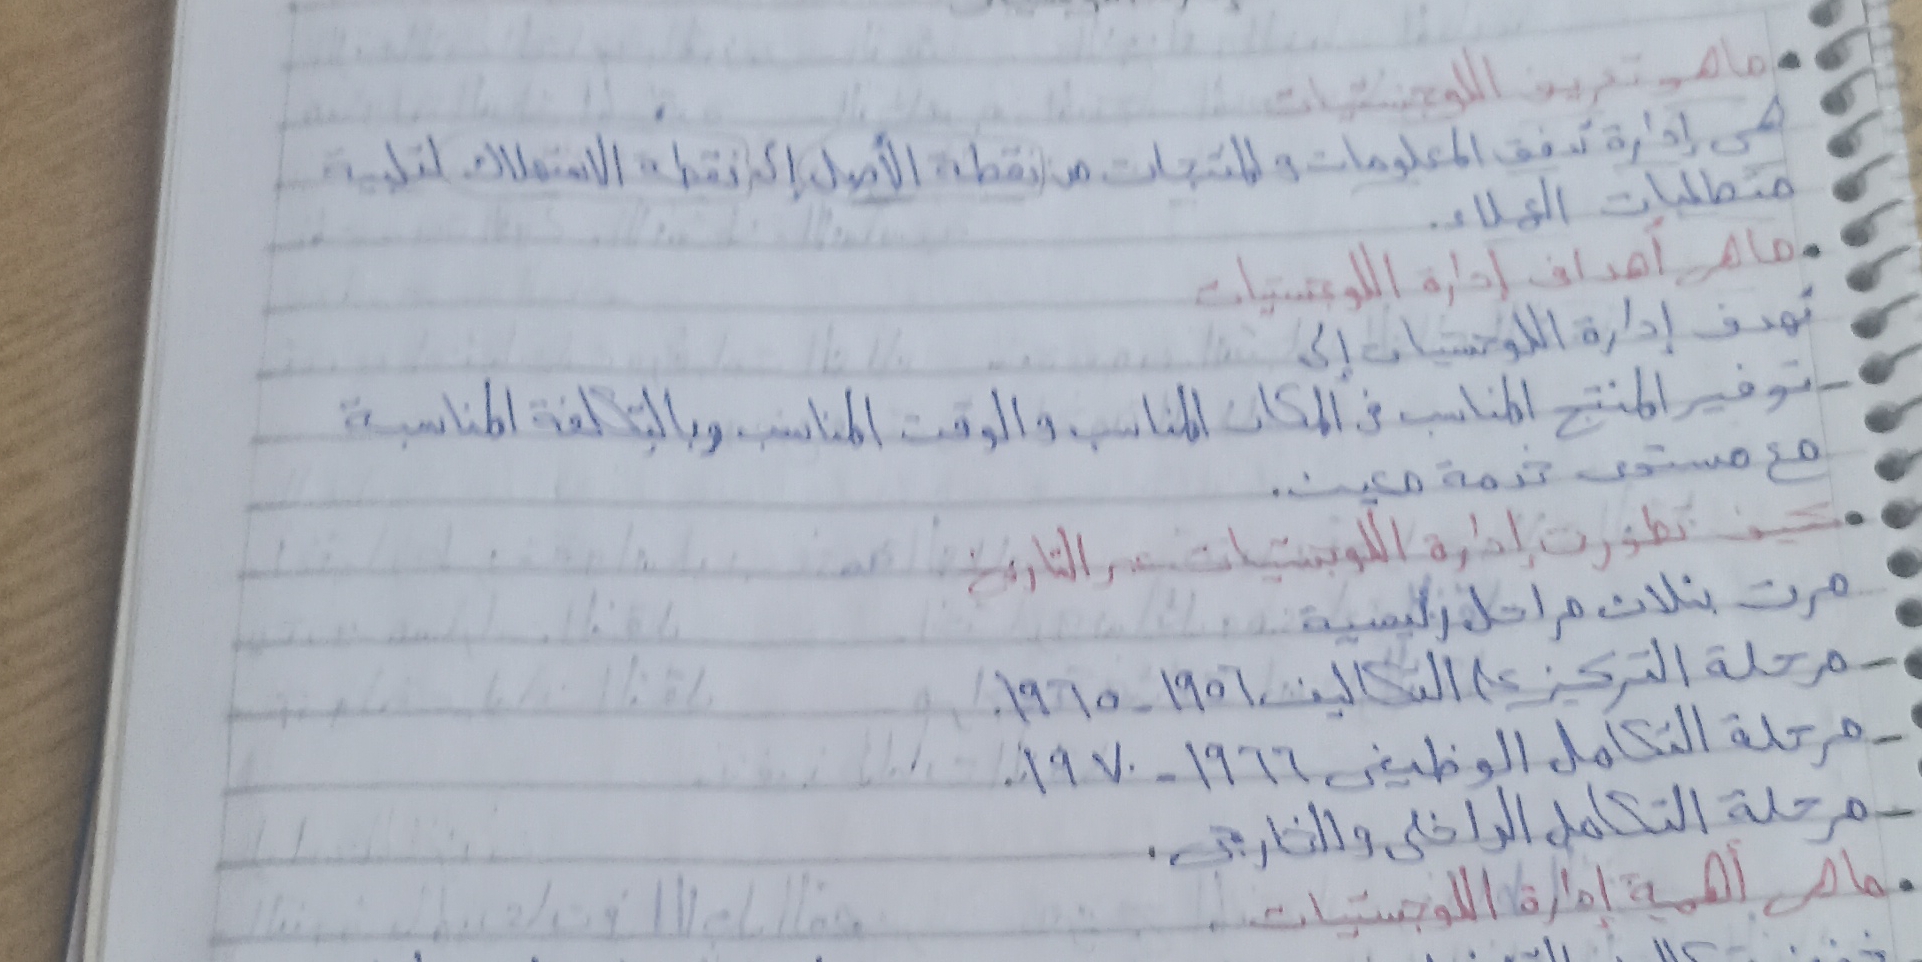 • ماهو تعريف اللوجستيات
هى إدارة تدفق المعلومات و المنتجات من نقطة الأصل إلى نقطة الاستهلاك لتلبية
متطلبات العملاء.
• ماهى أهداف إدارة اللوجستيات
تهدف إدارة اللوجستيات إلى
- توفير المنتج المناسب فى المكان المناسب والوقت المناسب وبالتكلفة المناسبة
مع مستوى خدمة معين.
• كيف تطورت إدارة اللوجستيات عبر التاريخ
مرت بثلاث مراحل رئيسية
- مرحلة التركيز على التكاليف ١٩٥٦ - ١٩٦٥.
- مرحلة التكامل الوظيفى ١٩٦٦ - ١٩٧٠.
- مرحلة التكامل الداخلى والخارجى.
• ماهى أهمية إدارة اللوجستيات